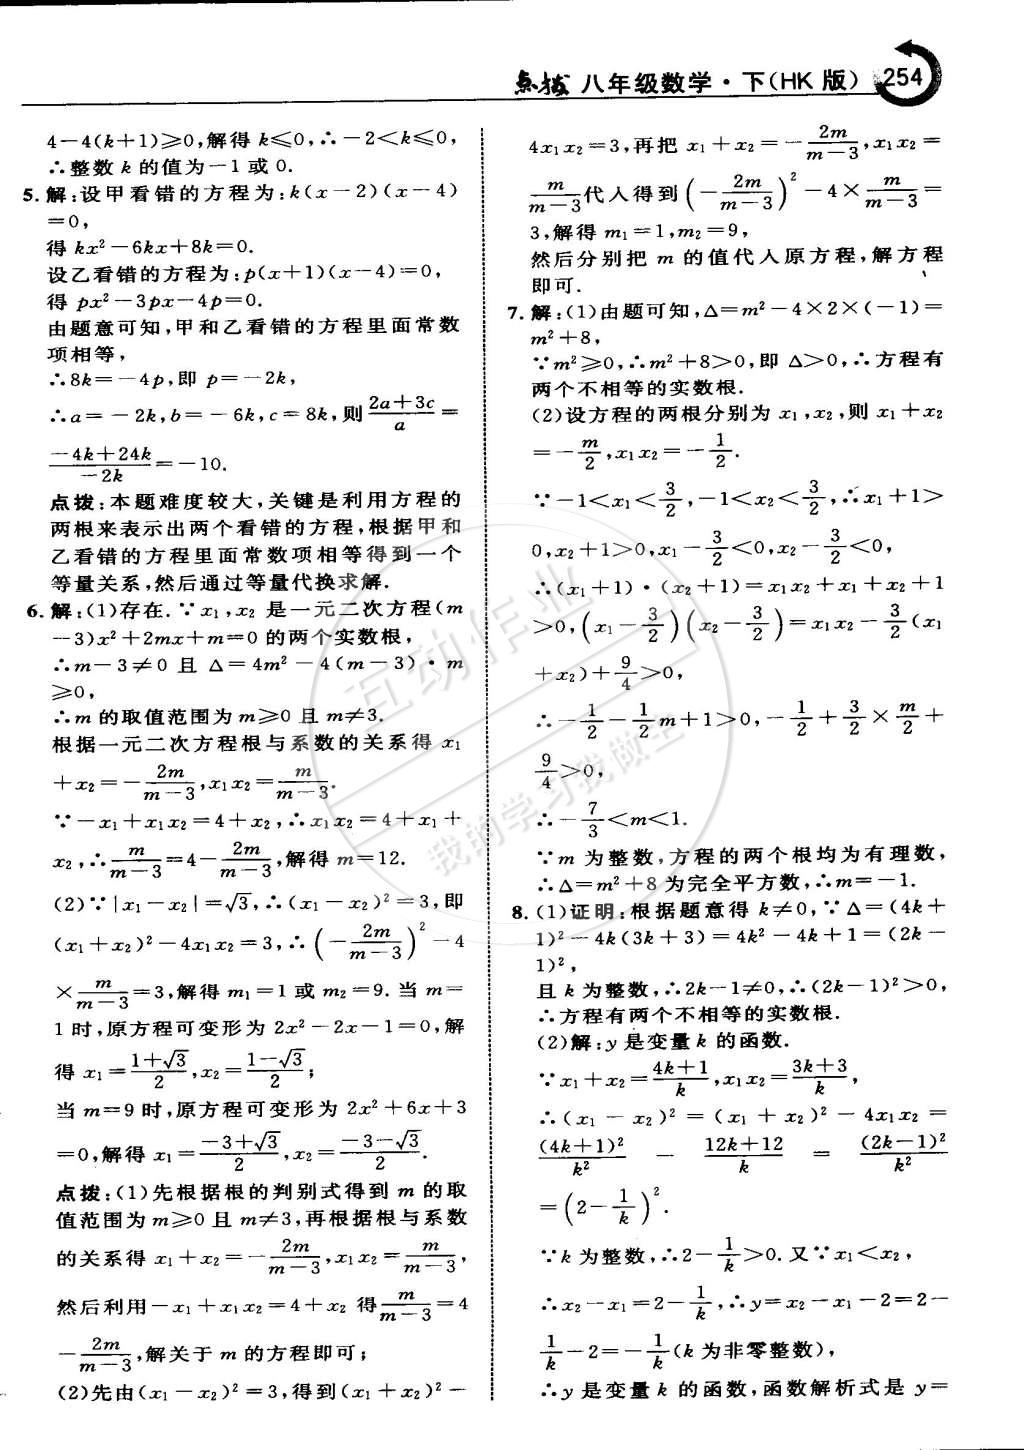 点拨 八年级数学·下(HK 版) 254
4-4(k+1)≥0,解得 k≤0,∴-2<k≤0,
∴整数 k 的值为-1 或 0.
5. 解:设甲看错的方程为:k(x-2)(x-4)
=0,
得 kx²-6kx+8k=0.
设乙看错的方程为:p(x+1)(x-4)=0,
得 px²-3px-4p=0.
由题意可知,甲和乙看错的方程里面常数
项相等,
∴8k=-4p,即 p=-2k,
∴a=-2k,b=-6k,c=8k,则 (2a+3c)/a =
(-4k+24k)/(-2k) =-10.
点拨:本题难度较大,关键是利用方程的
两根来表示出两个看错的方程,根据甲和
乙看错的方程里面常数项相等得到一个
等量关系,然后通过等量代换求解.
6. 解:(1)存在.∵x₁,x₂ 是一元二次方程(m
-3)x²+2mx+m=0 的两个实数根,
∴m-3≠0 且 Δ=4m²-4(m-3)·m
≥0,
∴m 的取值范围为 m≥0 且 m≠3.
根据一元二次方程根与系数的关系得 x₁
+x₂=-2m/(m-3),x₁x₂=m/(m-3).
∵-x₁+x₁x₂=4+x₂,∴x₁x₂=4+x₁+
x₂,∴m/(m-3)=4-2m/(m-3),解得 m=12.
(2)∵|x₁-x₂|=√3,∴(x₁-x₂)²=3,即
(x₁+x₂)²-4x₁x₂=3,∴(-2m/(m-3))²-4
×m/(m-3)=3,解得 m₁=1 或 m₂=9.当 m=
1 时,原方程可变形为 2x²-2x-1=0,解
得 x₁=(1+√3)/2,x₂=(1-√3)/2;
当 m=9 时,原方程可变形为 2x²+6x+3
=0,解得 x₁=(-3+√3)/2,x₂=(-3-√3)/2.
点拨:(1)先根据根的判别式得到 m 的取
值范围为 m≥0 且 m≠3,再根据根与系数
的关系得 x₁+x₂=-2m/(m-3),x₁x₂=m/(m-3),
然后利用-x₁+x₁x₂=4+x₂ 得m/(m-3)=4
-2m/(m-3),解关于 m 的方程即可;
(2)先由(x₁-x₂)²=3,得到(x₁+x₂)²-
4x₁x₂=3,再把 x₁+x₂=-2m/(m-3),x₁x₂=
m/(m-3)代入得到(-2m/(m-3))²-4×m/(m-3)=
3,解得 m₁=1,m₂=9,
然后分别把 m 的值代入原方程,解方程
即可.
7. 解:(1)由题可知,Δ=m²-4×2×(-1)=
m²+8,
∵m²≥0,∴m²+8>0,即 Δ>0,∴方程有
两个不相等的实数根.
(2)设方程的两根分别为 x₁,x₂,则 x₁+x₂
=-m/2,x₁x₂=-1/2.
∵-1<x₁<3/2,-1<x₂<3/2,∴x₁+1>
0,x₂+1>0,x₁-3/2<0,x₂-3/2<0,
∴(x₁+1)·(x₂+1)=x₁x₂+x₁+x₂+1
>0,(x₁-3/2)(x₂-3/2)=x₁x₂-3/2(x₁
+x₂)+9/4>0,
∴-1/2-1/2m+1>0,-1/2+3/2×m/2+
9/4>0,
∴-7/3<m<1.
∵m 为整数,方程的两个根均为有理数,
∴Δ=m²+8 为完全平方数,∴m=-1.
8. (1)证明:根据题意得 k≠0,∵Δ=(4k+
1)²-4k(3k+3)=4k²-4k+1=(2k-
1)²,
且 k 为整数,∴2k-1≠0,∴(2k-1)²>0,
∴方程有两个不相等的实数根.
(2)解:y 是变量 k 的函数.
∵x₁+x₂=(4k+1)/k,x₁x₂=(3k+3)/k,
∴(x₁-x₂)²=(x₁+x₂)²-4x₁x₂=
(4k+1)²/k² - (12k+12)/k = (2k-1)²/k²
=(2-1/k)².
∵k 为整数,∴2-1/k>0.又∵x₁<x₂,
∴x₂-x₁=2-1/k,∴y=x₂-x₁-2=2-
1/k-2=-1/k(k 为非零整数),
∴y 是变量 k 的函数,函数解析式是 y=
互动作业
我的学习我做主